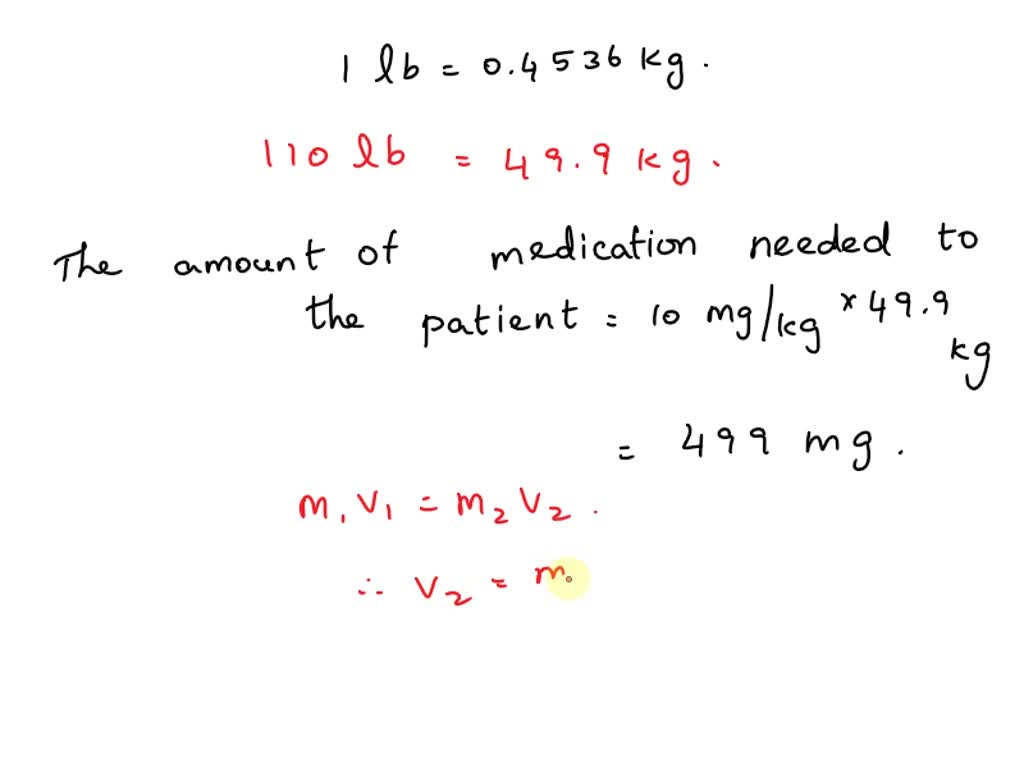 1 lb = 0.4536 kg.
110 lb = 49.9 kg.
The amount of medication needed to
the patient = 10 mg/kg × 49.9
kg
= 499 mg.
m₁V₁ = m₂V₂.
∴ V₂ = m